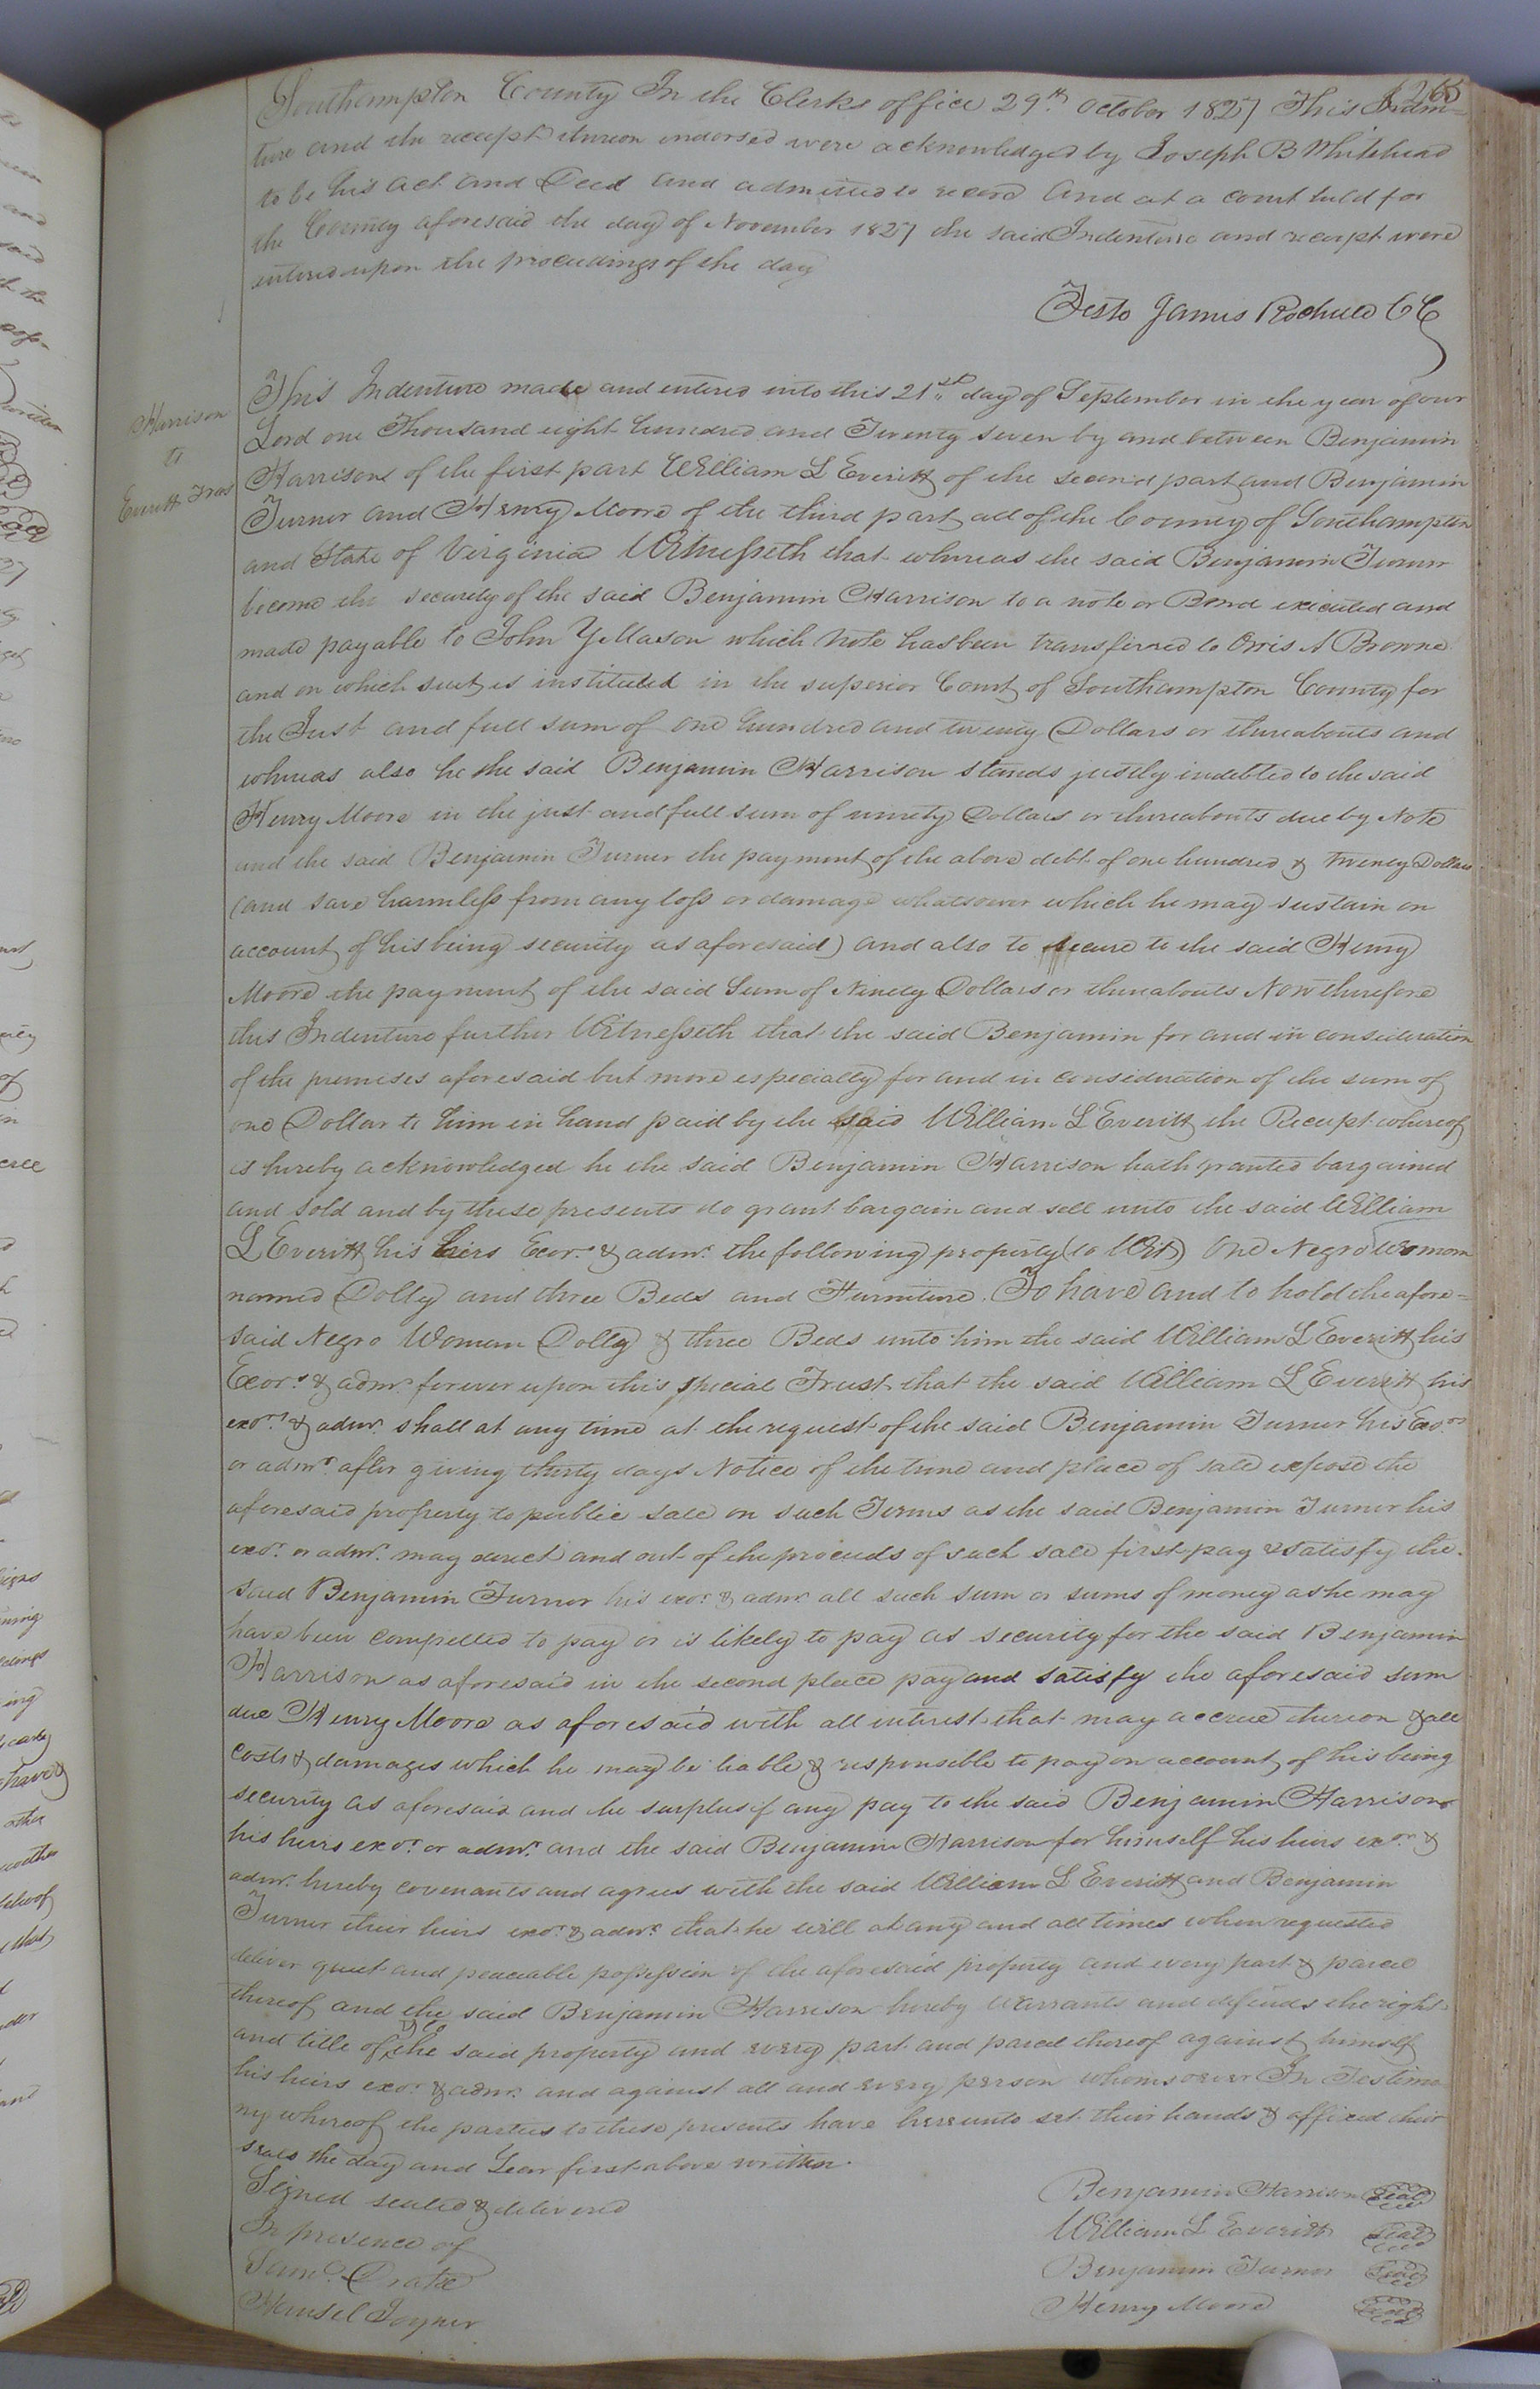 265
Southampton County In the Clerks office 29th October 1827 This Inden=
ture and the receipt thereon indorsed were acknowledged by Joseph B Whitehead
to be his act and Deed and admitted to record and at a court held for
the County aforesaid the day of November 1827 the said Indenture and receipt were
entered upon the proceedings of the day
Teste James Rochelle CC
Harrison
to
Everitt Trus
This Indenture made and entered into this 21st day of September in the year of our
Lord one Thousand eight hundred and Twenty seven by and between Benjamin
Harrison of the first part William L Everitt of the second part and Benjamin
Turner and Henry Moore of the third part all of the County of Southampton
and State of Virginia Witnesseth that whereas the said Benjamin Turner
become the security of the said Benjamin Harrison to a note or Bond executed and
made payable to John Y Mason which Note has been transferred to Orris A Browne
and on which suit is instituted in the superior Court of Southampton County for
the Just and full sum of one hundred and twenty Dollars or thereabouts and
whereas also he the said Benjamin Harrison stands justly indebted to the said
Henry Moore in the just and full sum of ninety Dollars or thereabouts due by Note
and the said Benjamin Turner the payment of the above debt of one hundred & twenty Dollars
(and save harmless from any loss or damage whatsoever which he may sustain on
account of his being security as aforesaid) and also to secure to the said Henry
Moore the payment of the said Sum of Ninety Dollars or thereabouts Now therefore
this Indenture further Witnesseth that the said Benjamin for and in consideration
of the premises aforesaid but more especially for and in consideration of the sum of
one Dollar to him in hand paid by the said William L Everitt the Receipt whereof
is hereby acknowledged he the said Benjamin Harrison hath granted bargained
and sold and by these presents do grant bargain and sell unto the said William
L Everitt his heirs Exors. & admr. the following property (to Wit) One Negro Womom
named Dolly and three Beds and Furniture. To have and to hold the afore=
said Negro Woman Dolly & three Beds unto him the said William L Everitt his
Exors. & admr. forever upon this special Trust that the said William L Everitt his
exors. & admr. shall at any time at the request of the said Benjamin Turner his Exors
or admr. after giving thirty days Notice of the time and place of sale expose the
aforesaid property to public sale on such Terms as the said Benjamin Turner his
exor. or admr. may direct and out of the proceeds of such sale first pay & satisfy the
said Benjamin Turner his exor. & admr. all such sum or sums of money as he may
have been compelled to pay or is likely to pay as security for the said Benjamin
Harrison as aforesaid in the second place pay and satisfy the aforesaid sum
due Henry Moore as aforesaid with all interest that may accrue thereon & all
costs & damages which he may be liable & responsible to pay on account of his being
security as aforesaid and the surplus if any pay to the said Benjamin Harrison
his heirs exor. or admr. and the said Benjamin Harrison for himself his heirs exors &
admr. hereby covenants and agrees with the said William L Everitt and Benjamin
Turner their heirs exor. & admr. that he will at any and all times when requested
deliver quiet and peaceable possession of the aforesaid property and every part & parcel
thereof and the said Benjamin Harrison hereby warrants and defends the right
and title of & to the said property and every part and parcel thereof against himself
his heirs exor. & admr. and against all and every person whomsoever In Testimo
ny whereof the parties to these presents have hereunto set their hands & affixed their
seals the day and Year first above written.
Signed sealed & delivered
In presence of
Saml. Drake
Hensel Joyner
Benjamin Harrison Seal
William L Everitt Seal
Benjamin Turner Seal
Henry Moore Seal